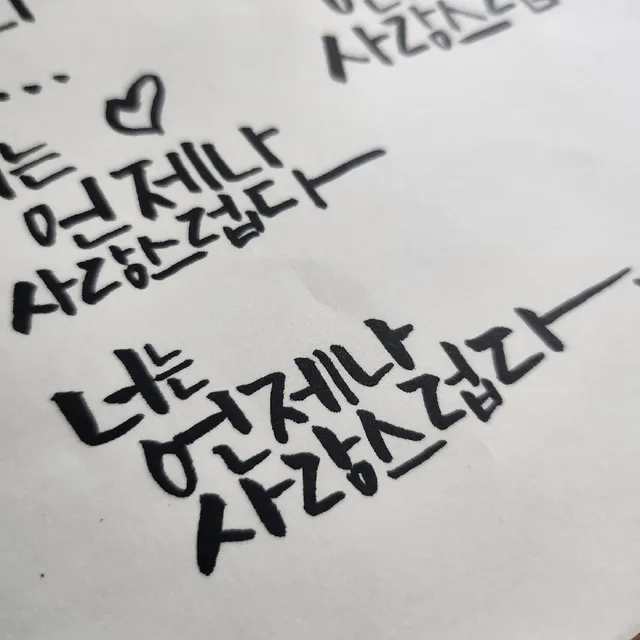 사랑스
...
는
언제나
사랑스럽다
너는
언제나
사랑스럽다